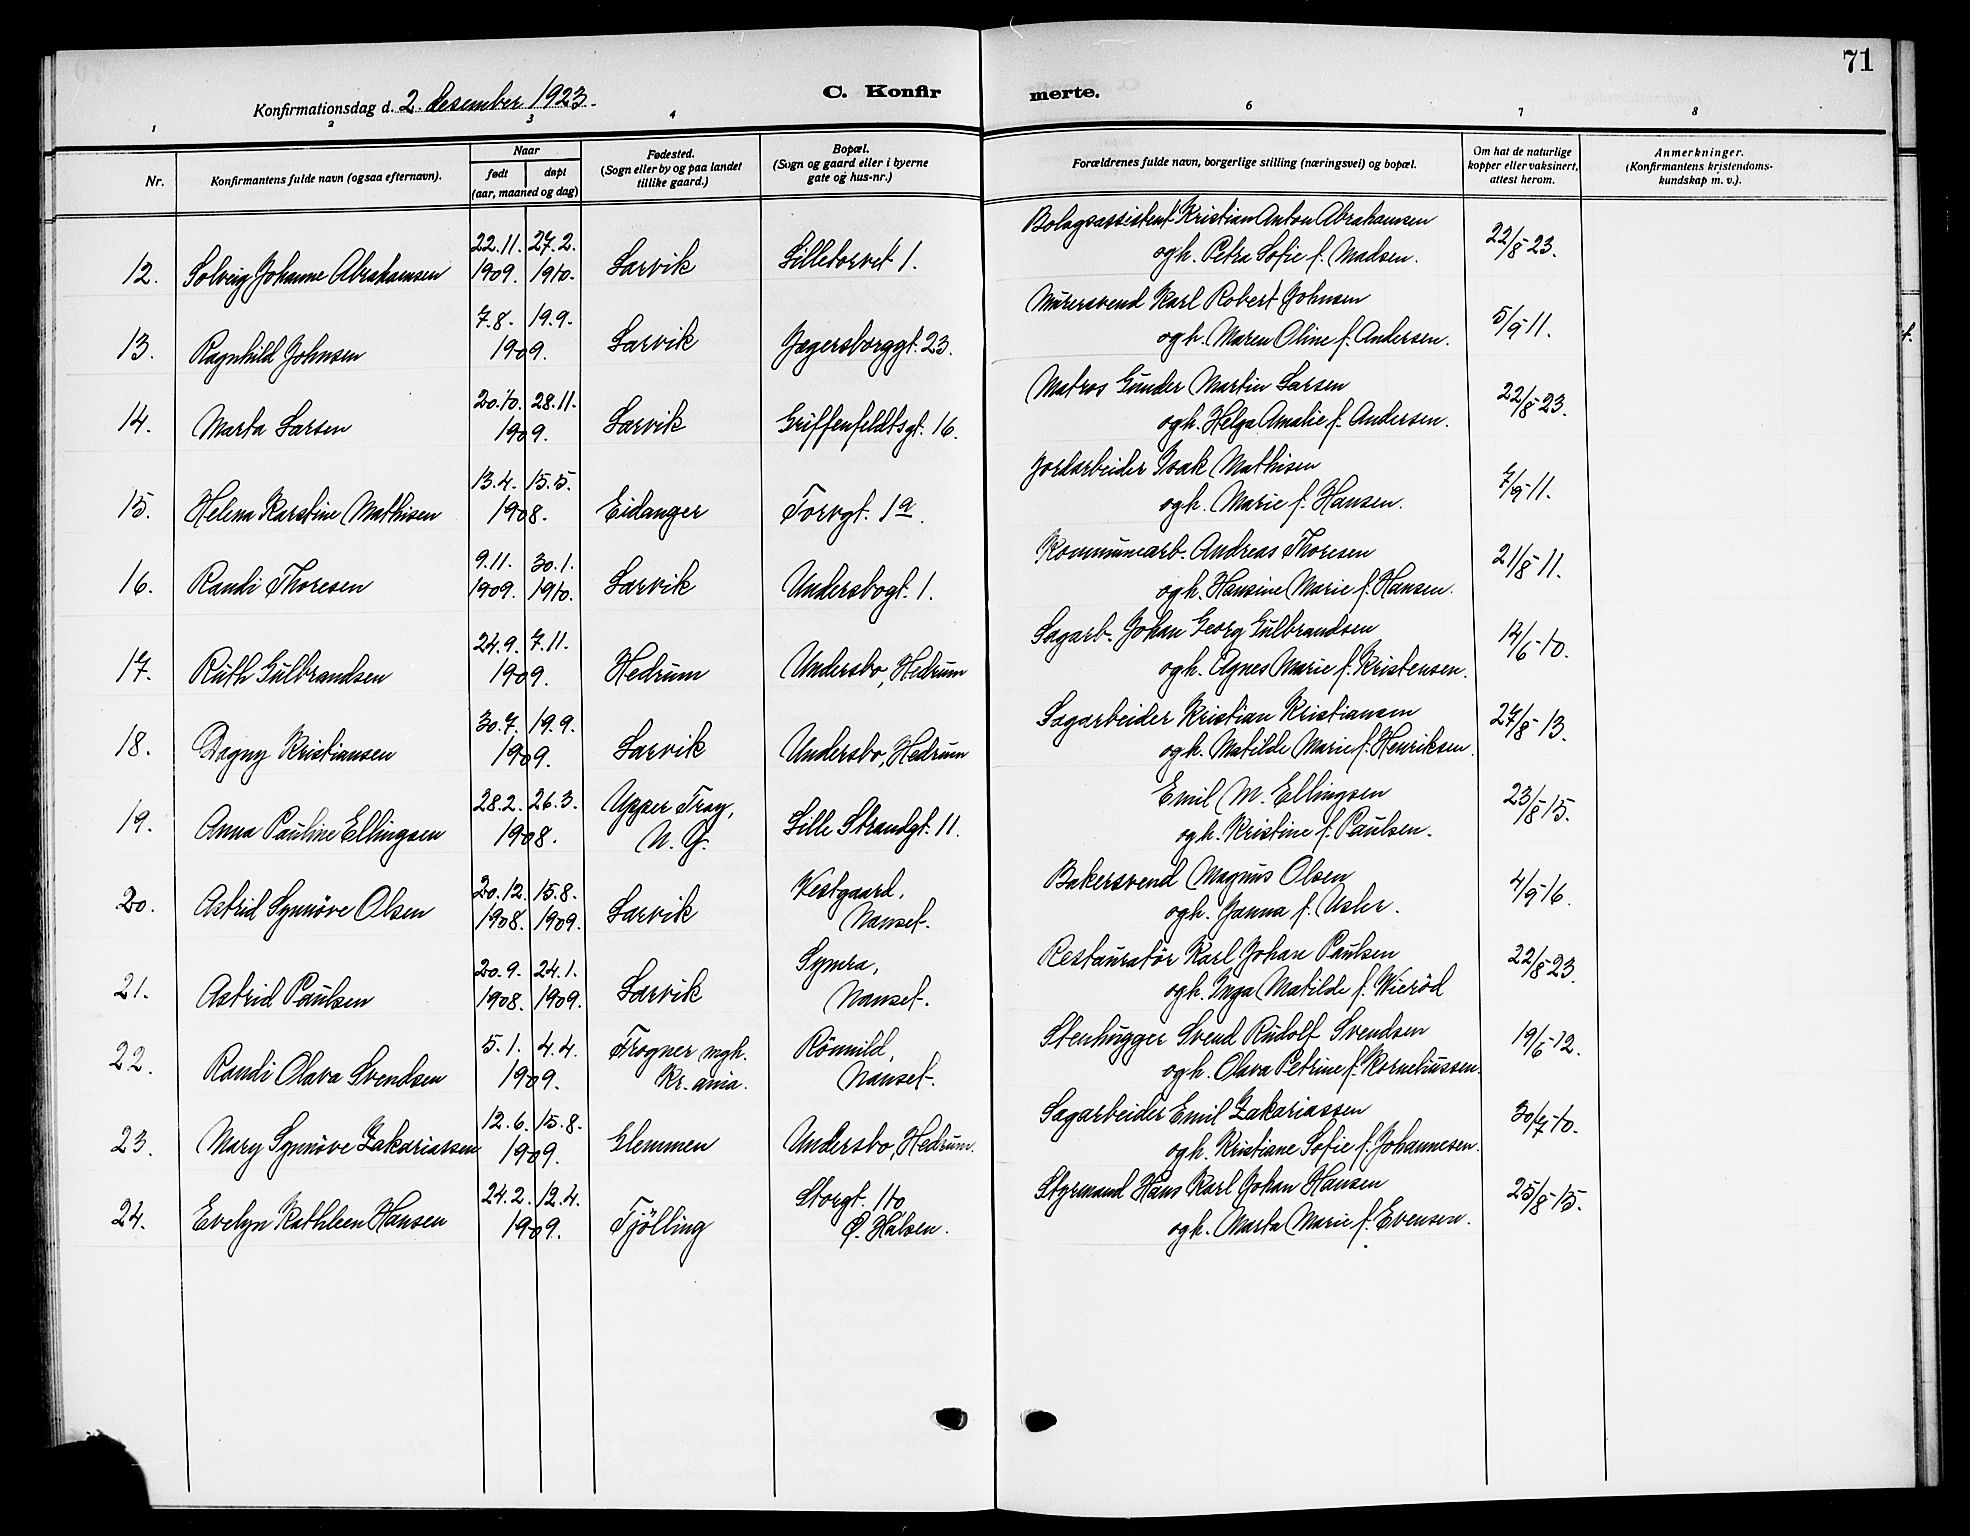 71
Konfirmationsdag d. 2. desember 1923.
C. Konfirmerte.
1 2 3 4 6 7 8
Nr.
Konfirmantens fulde navn (ogsaa efternavn).
Naar
født
døpt
(aar, maaned og dag)
Fødested.
(Sogn eller by og paa landet
tillike gaard.)
Bopæl.
(Sogn og gaard eller i byerne
gate og hus-nr.)
Forældrenes fulde navn, borgerlige stilling (næringsvei) og bopæl.
Om hat de naturlige
kopper eller vaksinert,
attest herom.
Anmerkninger.
(Konfirmantens kristendoms-
kundskap m. v.).
12. Solveig Johanne Abrahamsen 22.11. 1909. 27.2. 1910. Larvik Lilletorvet 1. Bolagsassistent Kristian Anton Abrahamsen
og h. Petra Sofie f. Madsen. 22/8-23.
13. Ragnhild Johnsen 7.8. 19.9. 1909. Larvik Jegersborggt. 23. Murersvend Karl Robert Johnsen
og h. Maren Oline f. Andersen. 5/9-11.
14. Marta Larsen 20.10. 28.11. 1909. Larvik Griffenfeldtsgt. 16. Matros Gunder Martin Larsen
og h. Helga Amalie f. Andersen. 22/8-23.
15. Helena Karstine Mathisen 13.4. 15.5. 1908. Eidanger Torvgt. 1a. Jordarbeider Isak Mathisen
og h. Marie f. Hansen. 7/9-11.
16. Randi Thoresen 9.11. 1909. 30.1. 1910. Larvik Undersbogt. 1. Kommunearb. Andreas Thoresen
og h. Hansine Marie f. Hansen. 21/8-11.
17. Ruth Gulbrandsen 24.9. 7.11. 1909. Hedrum Undersbo, Hedrum Sagarb. Johan Georg Gulbrandsen
og h. Agnes Marie f. Kristensen. /6-10.
18. Dagny Kristiansen 30.7. 19.9. 1909. Larvik Undersbo, Hedrum Sagarbeider Kristian Kristiansen
og h. Matilde Marie f. Henriksen. 27/8-13.
19. Anna Pauline Ellingsen 28.2. 26.3. 1908. Upper Troy, N. Y. Lille Strandgt. 11. Emil M. Ellingsen
og h. Kristine f. Paulsen. 23/8-15.
20. Astrid Synnöve Olsen 20.12. 1908. 15.8. 1909. Larvik Vestgaard, Nanset. Bakersvend Magnus Olsen
og h. Janna f. Usler. 4/9-16.
21. Astrid Paulsen 20.9. 1908. 24.1. 1909. Larvik Symra, Nanset. Restauratør Karl Johan Paulsen
og h. Inga Matilde f. Wieröd 22/8-23.
22. Randi Olava Svendsen 5.1. 4.4. 1909. Frogner mgh. Kr.ania. Römild, Nanset. Stenhugger Svend Rudolf Svendsen
og h. Olava Petrine f. Korneliussen. 19/6-12.
23. Mary Synnöve Zakariassen 12.6. 15.8. 1909. Glemmen Undersbo, Hedrum. Sagarbeider Emil Zakariassen
og h. Kristiane Sofie f. Johannesen. 30/7-10.
24. Evelyn Kathleen Hansen 24.2. 12.4. 1909. Tjölling Storgt. 110 Ø. Halsen. Styrmand Hans Karl Johan Hansen
og h. Marta Marie f. Evensen. 25/8-15.